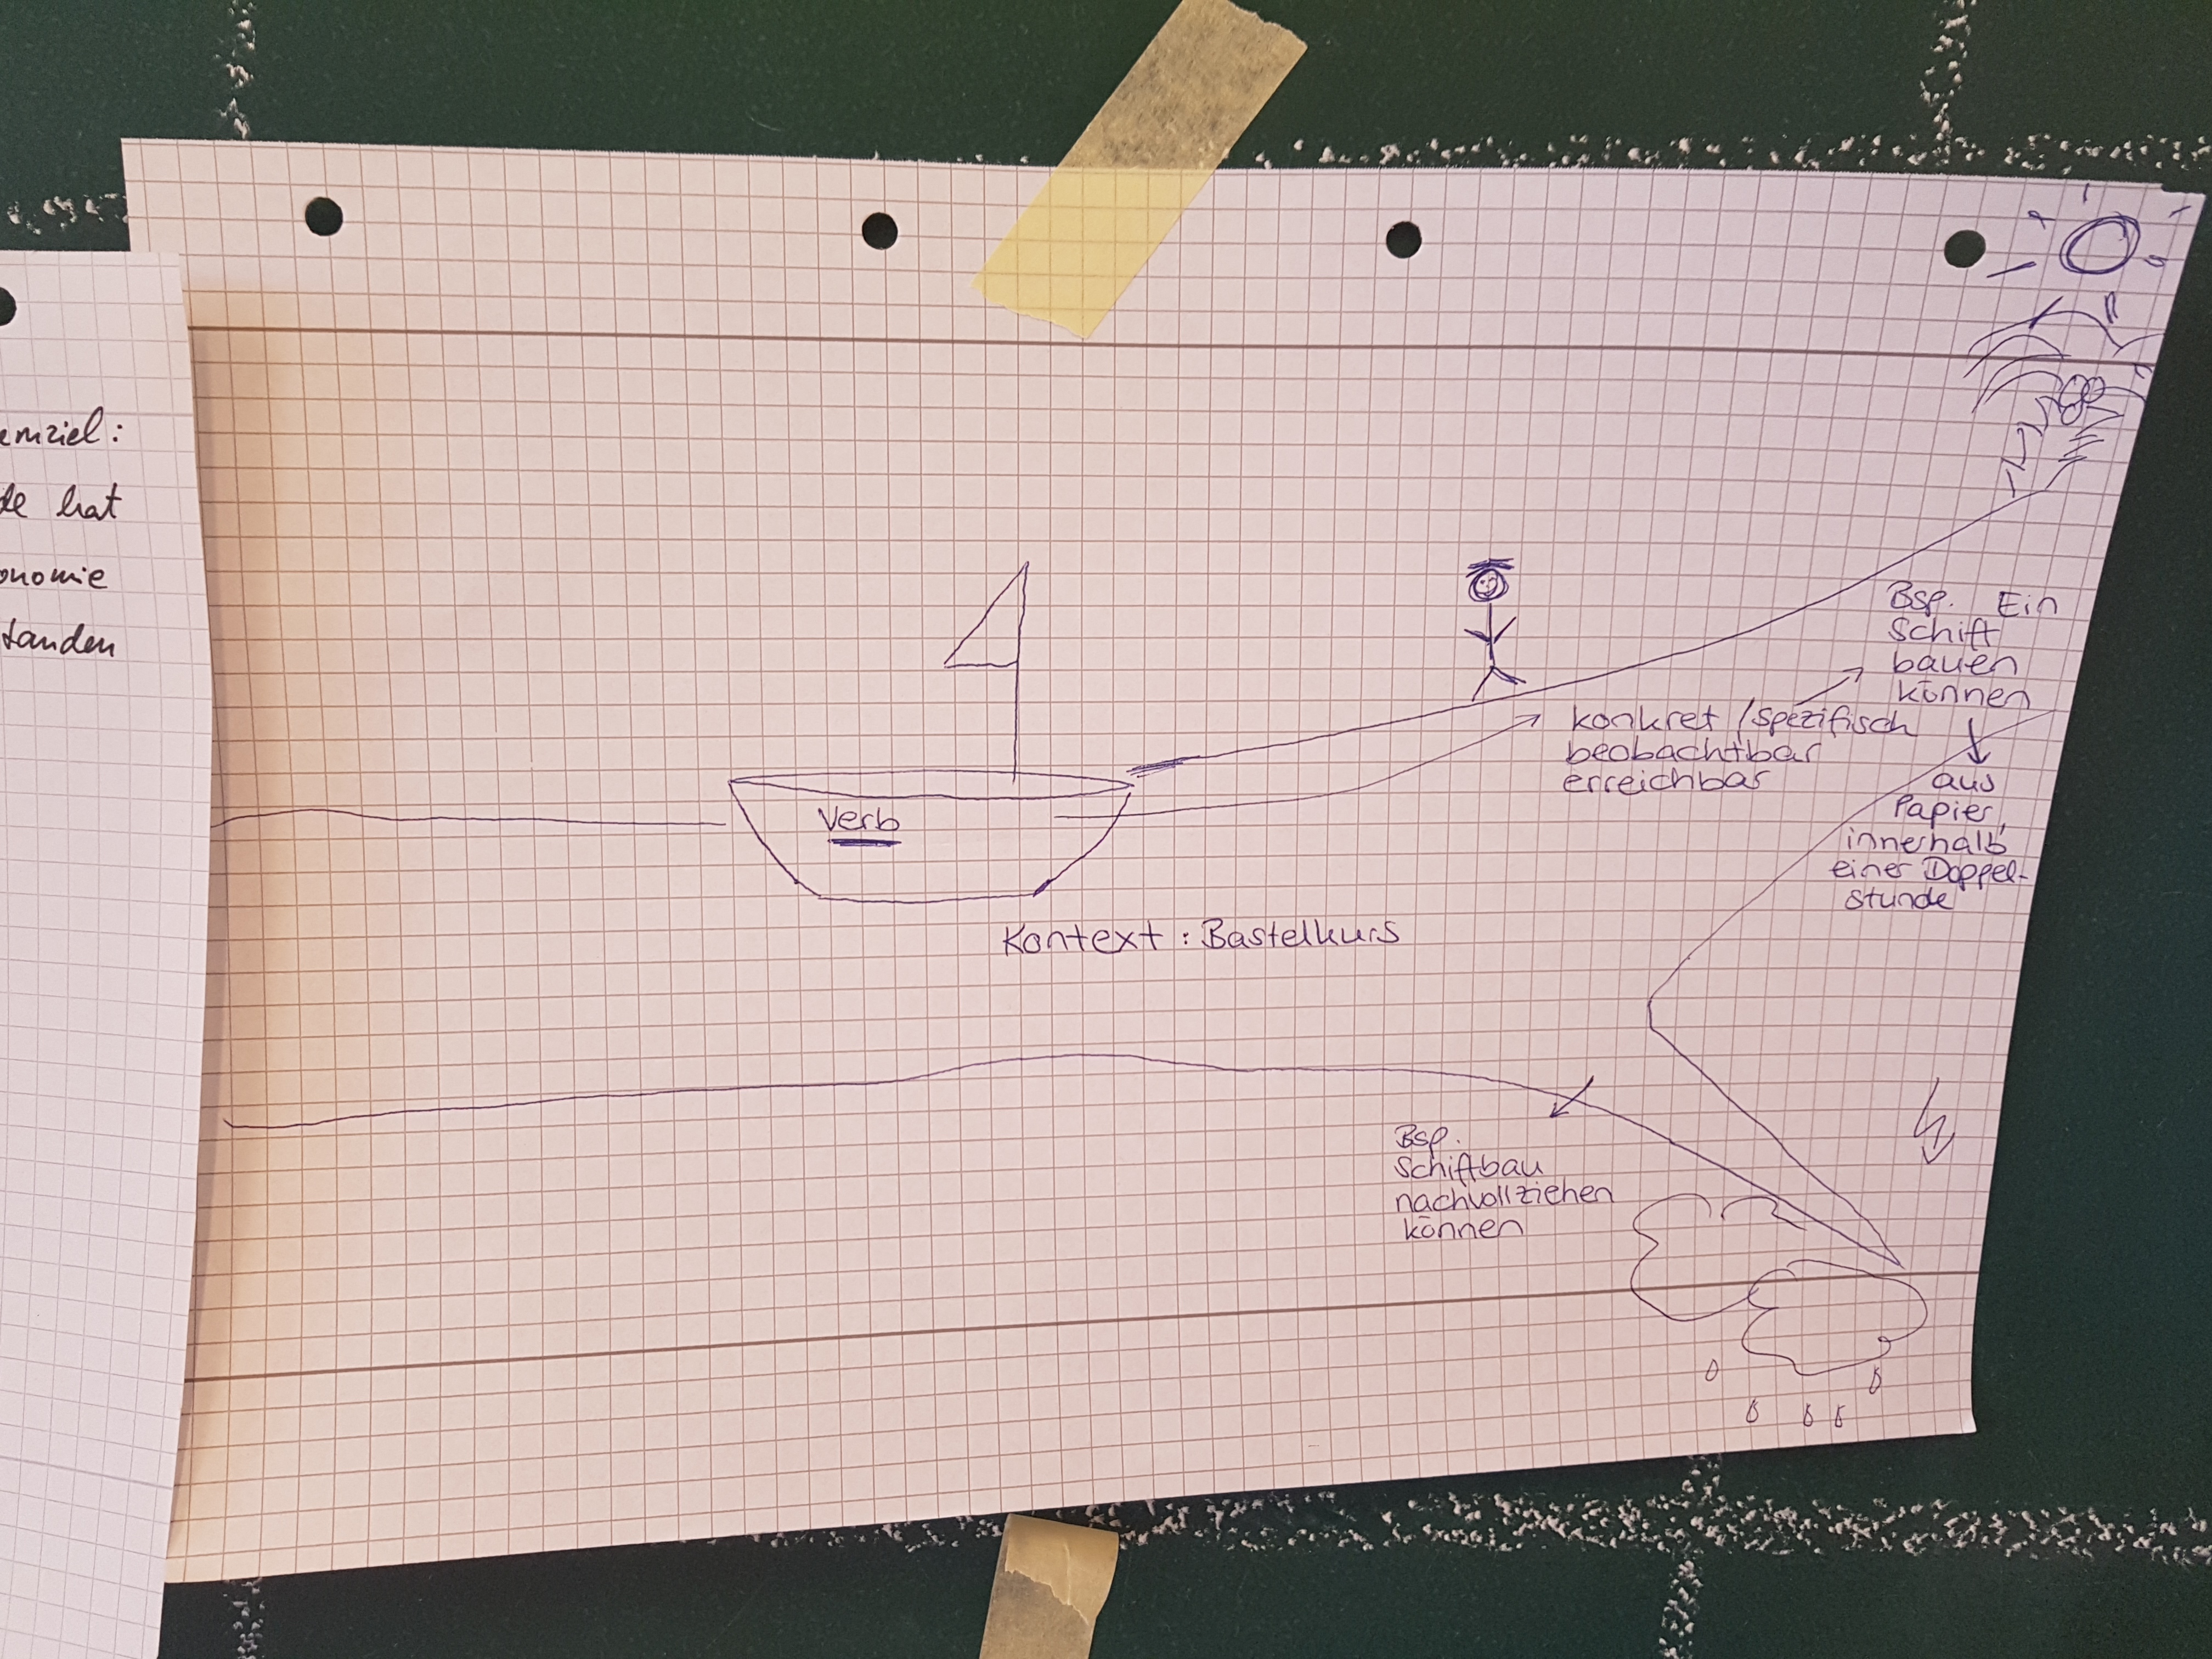 emziel:
de hat
onomie
tanden
Verb
Kontext : Bastelkurs
konkret / spezifisch
beobachtbar
erreichbar
Bsp. Ein
Schiff
bauen
können
aus
Papier,
innerhalb
einer Doppel-
stunde
Bsp.
Schiffbau
nachvollziehen
können